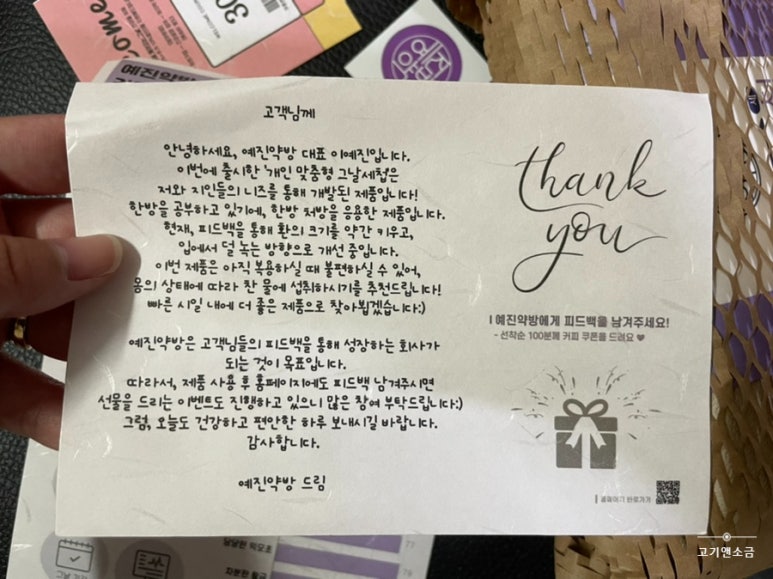 고객님께
안녕하세요, 예진약방 대표 이예진입니다.
이번에 출시한 '개인 맞춤형 그날세첩은
저와 지인들의 니즈를 통해 개발된 제품입니다!
한방을 공부하고 있기에, 한방 처방을 응용한 제품입니다.
현재, 피드백을 통해 환의 크기를 약간 키우고,
입에서 덜 녹는 방향으로 개선 중입니다.
이번 제품은 아직 복용하실 때 불편하실 수 있어,
몸의 상태에 따라 찬 물에 섭취하시기를 추천드립니다!
빠른 시일 내에 더 좋은 제품으로 찾아뵙겠습니다:)
예진약방은 고객님들의 피드백을 통해 성장하는 회사가
되는 것이 목표입니다.
따라서, 제품 사용 후 홈페이지에도 피드백 남겨주시면
선물을 드리는 이벤트도 진행하고 있으니 많은 참여 부탁드립니다:)
그럼, 오늘도 건강하고 편안한 하루 보내시길 바랍니다.
감사합니다.
예진약방 드림
thank
you
| 예진약방에게 피드백을 남겨주세요!
- 선착순 100분께 커피 쿠폰을 드려요 ♥
| 홈페이지 바로가기
예진약방
30
come
예진
약방
77
고기앤소금